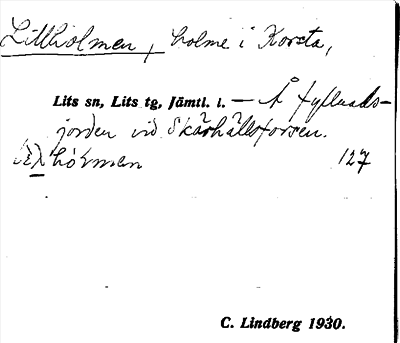 Lillholmen, holme i Korsta,
Lits sn, Lits tg, Jämtl. l. — Å fyllnads-
jorden vid Skärhällsforsen.
hólmen 127
C. Lindberg 1930.